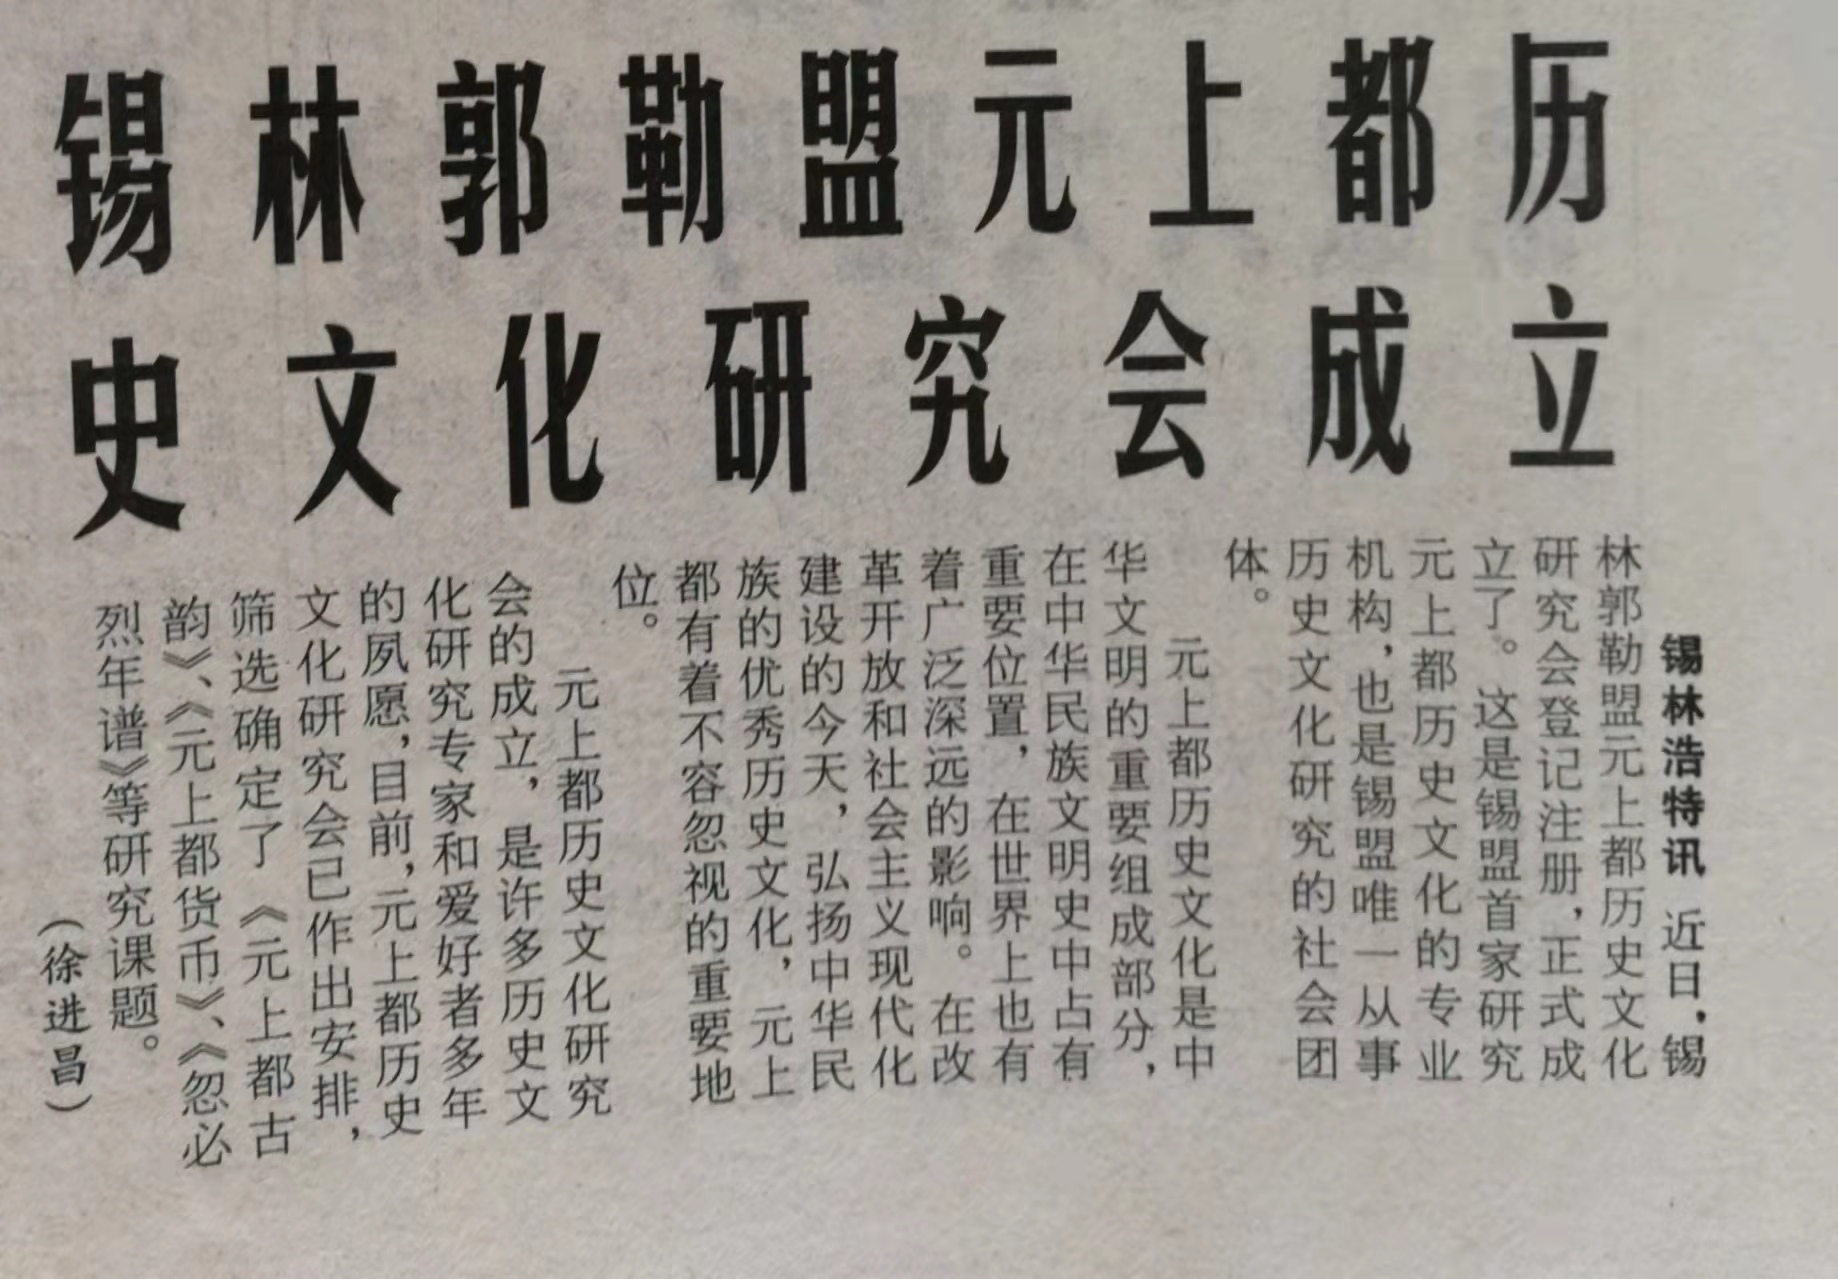 锡林郭勒盟元上都历
史文化研究会成立
锡林浩特讯 近日，锡
林郭勒盟元上都历史文化
研究会登记注册，正式成
立了。这是锡盟首家研究
元上都历史文化的专业
机构，也是锡盟唯一从事
历史文化研究的社会团
体。
元上都历史文化是中
华文明的重要组成部分，
在中华民族文明史中占有
重要位置，在世界上也有
着广泛深远的影响。在改
革开放和社会主义现代化
建设的今天，弘扬中华民
族的优秀历史文化，元上
都有着不容忽视的重要地
位。
元上都历史文化研究
会的成立，是许多历史文
化研究专家和爱好者多年
的夙愿，目前，元上都历史
文化研究会已作出安排，
筛选确定了《元上都古
韵》、《元上都货币》、《忽必
烈年谱》等研究课题。
（徐进昌）